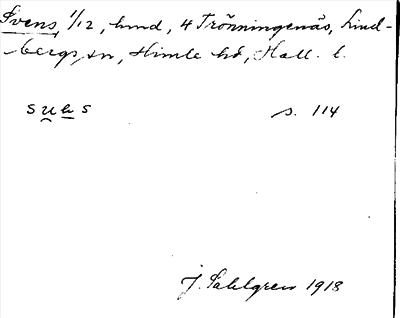 Svens, 1/12, hmd, 4 Trönningenäs, Lind-
bergs sn, Himle hd, Hall. l.
suhs s. 114
J. Sahlgren 1918